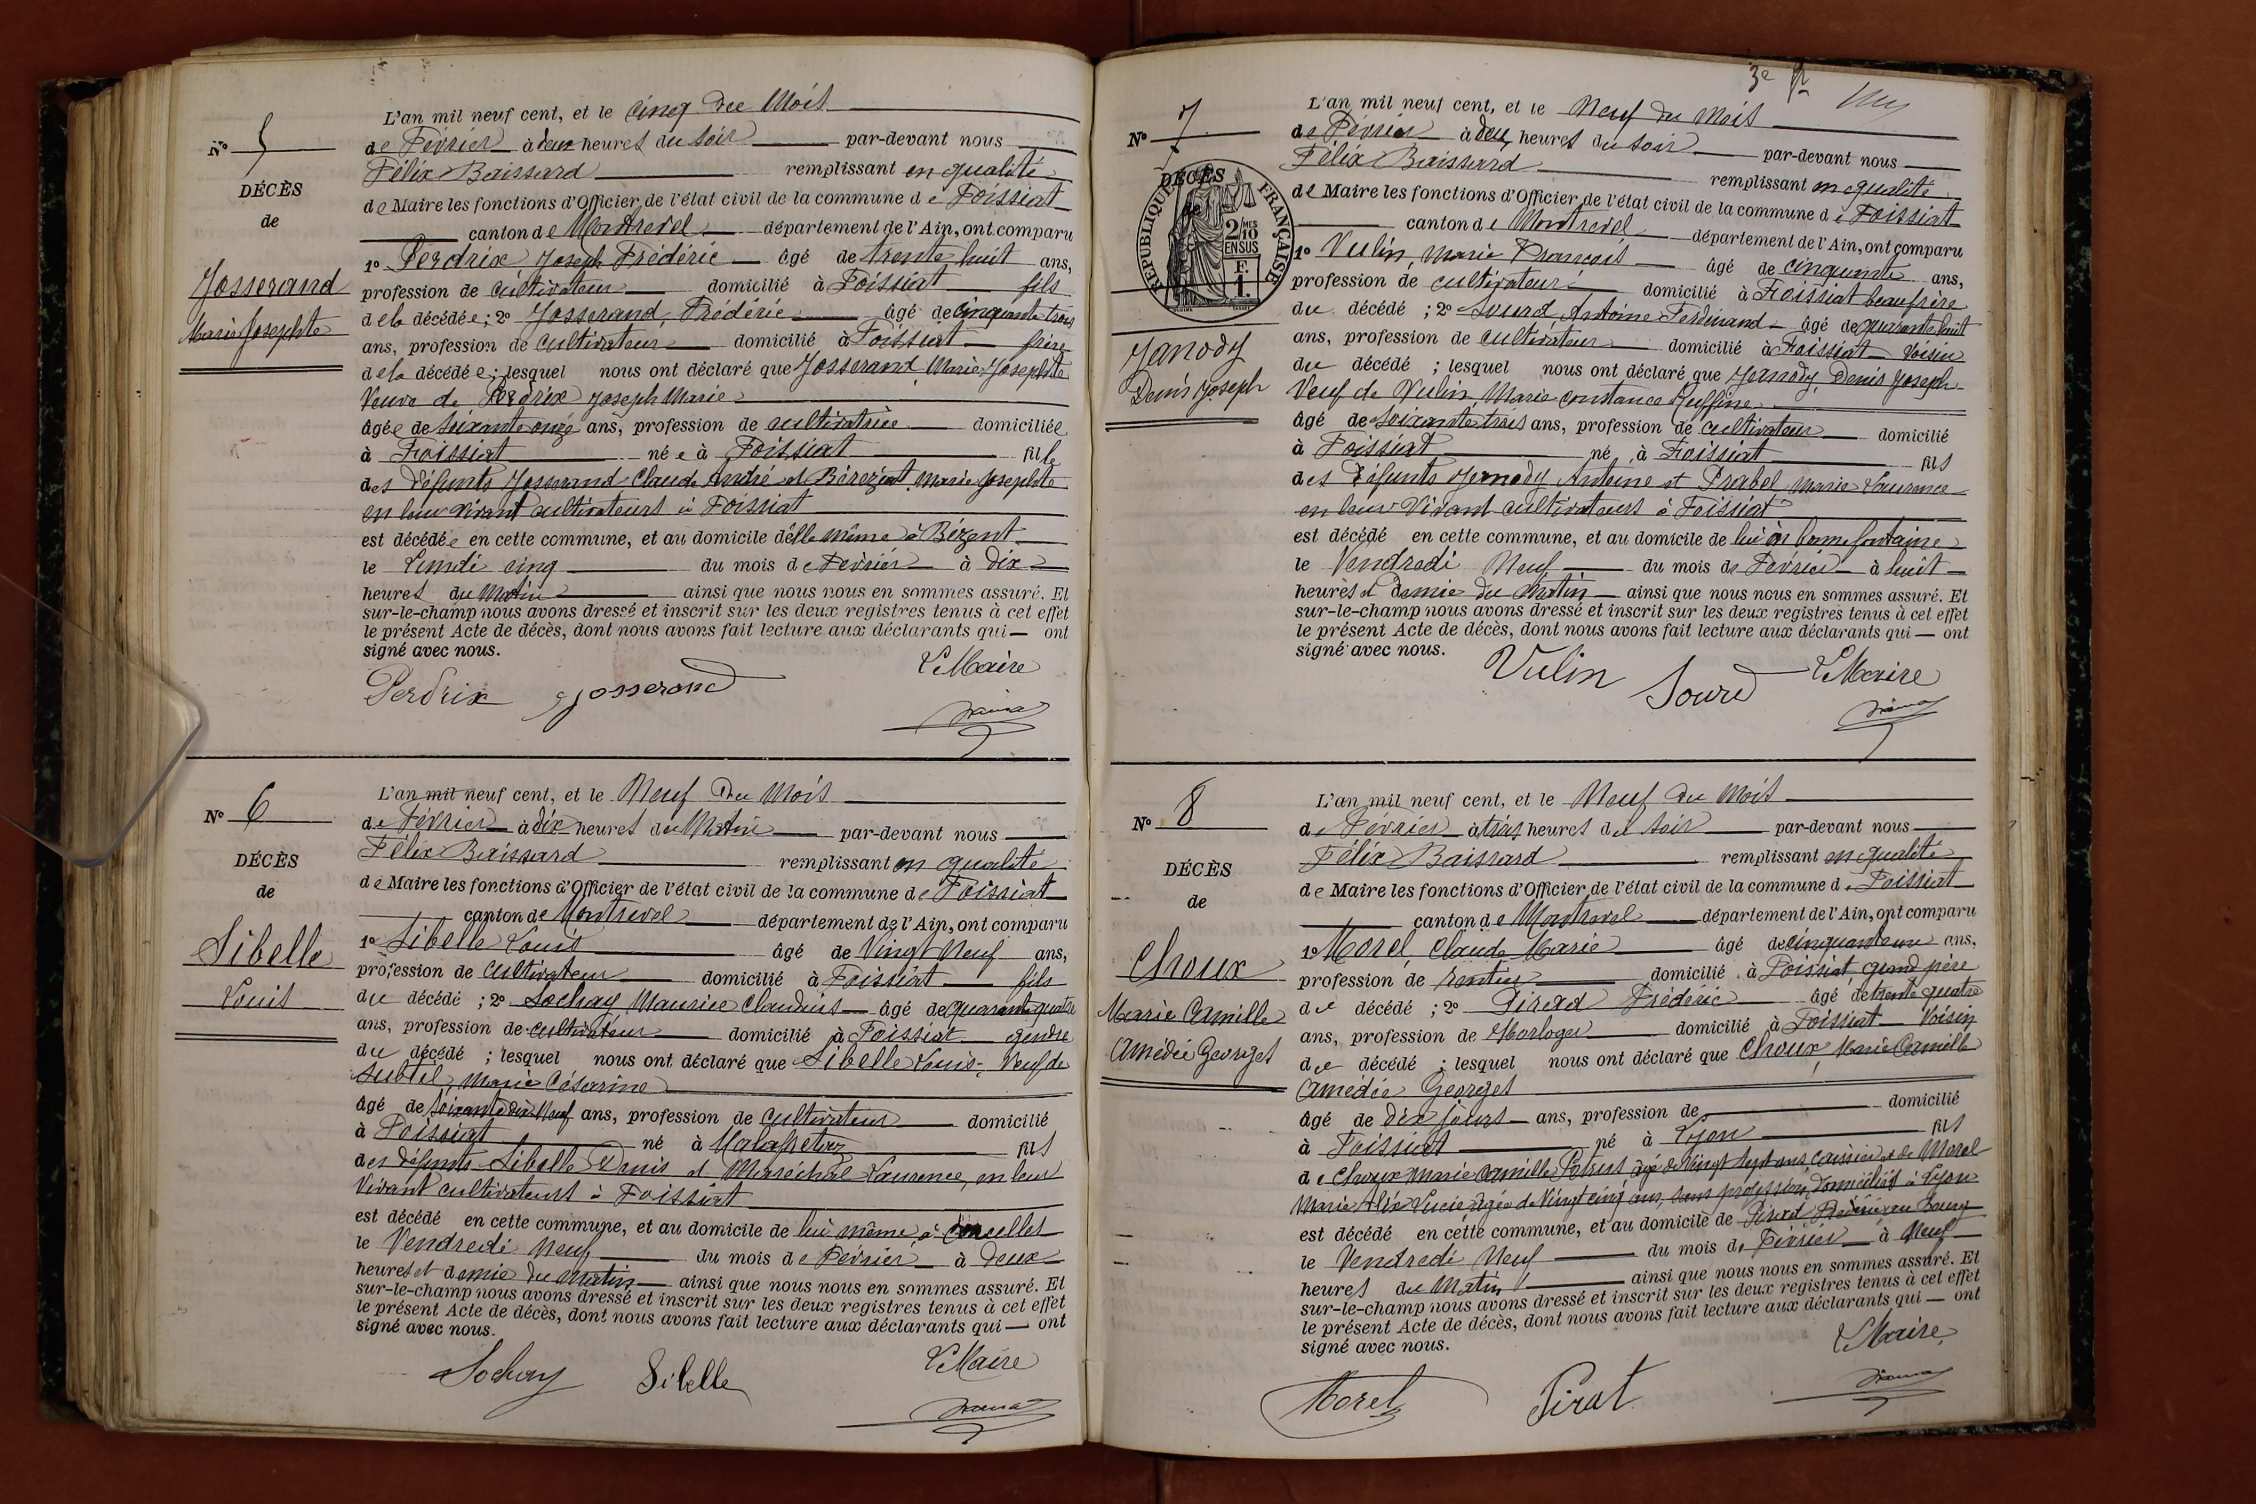 N° 5
DÉCÈS
de
Josserand
Marie Josephte
L'an mil neuf cent, et le cinq du Mois
de Février à deux heures du soir par-devant nous
Félix Baissard remplissant en qualité
de Maire les fonctions d'Officier de l'état civil de la commune de Foissiat
canton de Montrevel département de l'Ain, ont comparu
1° Perdrix Joseph Frédéric âgé de trente huit ans,
profession de cultivateur domicilié à Foissiat fils
de la décédée ; 2° Josserand, Frédéric âgé de cinquante trois
ans, profession de cultivateur domicilié à Foissiat frère
de la décédée ; lesquel nous ont déclaré que Josserand Marie Josephte
Veuve de Perdrix Joseph Marie
âgée de soixante onze ans, profession de cultivatrice domiciliée
à Foissiat née à Foissiat fille
des défunts Josserand Claude André et Béréziat Marie Josephte
en leur vivant cultivateurs à Foissiat
est décédée en cette commune, et au domicile d'elle même à Bézent
le Lundi cinq du mois de Février à dix
heures du Matin ainsi que nous nous en sommes assuré. Et
sur-le-champ nous avons dressé et inscrit sur les deux registres tenus à cet effet
le présent Acte de décès, dont nous avons fait lecture aux déclarants qui — ont
signé avec nous.
Le Maire
Perdrix Josserand
N° 6
DÉCÈS
de
Sibelle
Louis
L'an mil neuf cent, et le Neuf du Mois
de Février à dix heures du Matin par-devant nous
Félix Baissard remplissant en qualité
de Maire les fonctions d'Officier de l'état civil de la commune de Foissiat
canton de Montrevel département de l'Ain, ont comparu
1° Sibelle Louis âgé de Vingt Neuf ans,
profession de cultivateur domicilié à Foissiat fils
du décédé ; 2° Sochay, Maurice Claudius âgé de quarante quatre
ans, profession de cultivateur domicilié à Foissiat gendre
du décédé ; lesquel nous ont déclaré que Sibelle Louis, Veuf de
Subtil, Marie Césarine
âgé de soixante dix Neuf ans, profession de cultivateur domicilié
à Foissiat né à Malafretaz fils
des défunts Sibelle Denis et Maréchal Laurence, en leur
Vivant cultivateurs à Foissiat
est décédé en cette commune, et au domicile de lui même, à
le Vendredi Neuf du mois de Février à deux
heures et demie du Matin ainsi que nous nous en sommes assuré. Et
sur-le-champ nous avons dressé et inscrit sur les deux registres tenus à cet effet
le présent Acte de décès, dont nous avons fait lecture aux déclarants qui — ont
signé avec nous.
Le Maire
Sochay Sibelle
3e
N° 7
DÉCÈS
de
RÉPUBLIQUE FRANÇAISE
2/10 MES
EN SUS
F.
1.
Janody
Denis Joseph
L'an mil neuf cent, et le Neuf du Mois
de Février à deux heures du soir par-devant nous
Félix Baissard remplissant en qualité
de Maire les fonctions d'Officier de l'état civil de la commune de Foissiat
canton de Montrevel département de l'Ain, ont comparu
1° Vulin, Marie François âgé de cinquante ans,
profession de cultivateur domicilié à Foissiat beau frère
du décédé ; 2° Sourd Antoine Ferdinand âgé de quarante huit
ans, profession de cultivateur domicilié à Foissiat Voisin
du décédé ; lesquel nous ont déclaré que Janody, Denis Joseph
Veuf de Vulin Marie Constance Ruffine
âgé de soixante trois ans, profession de cultivateur domicilié
à Foissiat né à Foissiat fils
des Défunts Janody Antoine et Prabel Marie Laurence
en leur Vivant cultivateurs à Foissiat
est décédé en cette commune, et au domicile de lui à bonne fontaine
le Vendredi Neuf du mois de Février à huit
heures et demie du Matin ainsi que nous nous en sommes assuré. Et
sur-le-champ nous avons dressé et inscrit sur les deux registres tenus à cet effet
le présent Acte de décès, dont nous avons fait lecture aux déclarants qui — ont
signé avec nous.
Vulin Sourd Le Maire
N° 8
DÉCÈS
de
Choux
Marie Camille
Amédée Georges
L'an mil neuf cent, et le Neuf du Mois
de Février à trois heures du soir par-devant nous
Félix Baissard remplissant en qualité
de Maire les fonctions d'Officier de l'état civil de la commune de Foissiat
canton de Montrevel département de l'Ain, ont comparu
1° Morel, Claude Marie âgé de cinquante un ans,
profession de rentier domicilié à Foissiat grand père
du décédé ; 2° Pirad Frédéric âgé de trente quatre
ans, profession de Horloger domicilié à Foissiat Voisin
du décédé ; lesquel nous ont déclaré que Choux, Marie Camille
Amédée Georges
âgé de dix jours ans, profession de domicilié
à Foissiat né à Lyon fils
de Choux Marie Camille Petrus âgé de Vingt sept ans caissier et de Morel
Marie Alix Lucie âgée de Vingt cinq ans, sans profession, domiciliés à Lyon
est décédé en cette commune, et au domicile de Pirad Frédéric au Bourg
le Vendredi Neuf du mois de Février à Neuf
heures du Matin ainsi que nous nous en sommes assuré. Et
sur-le-champ nous avons dressé et inscrit sur les deux registres tenus à cet effet
le présent Acte de décès, dont nous avons fait lecture aux déclarants qui — ont
signé avec nous.
Le Maire
Morel Pirat